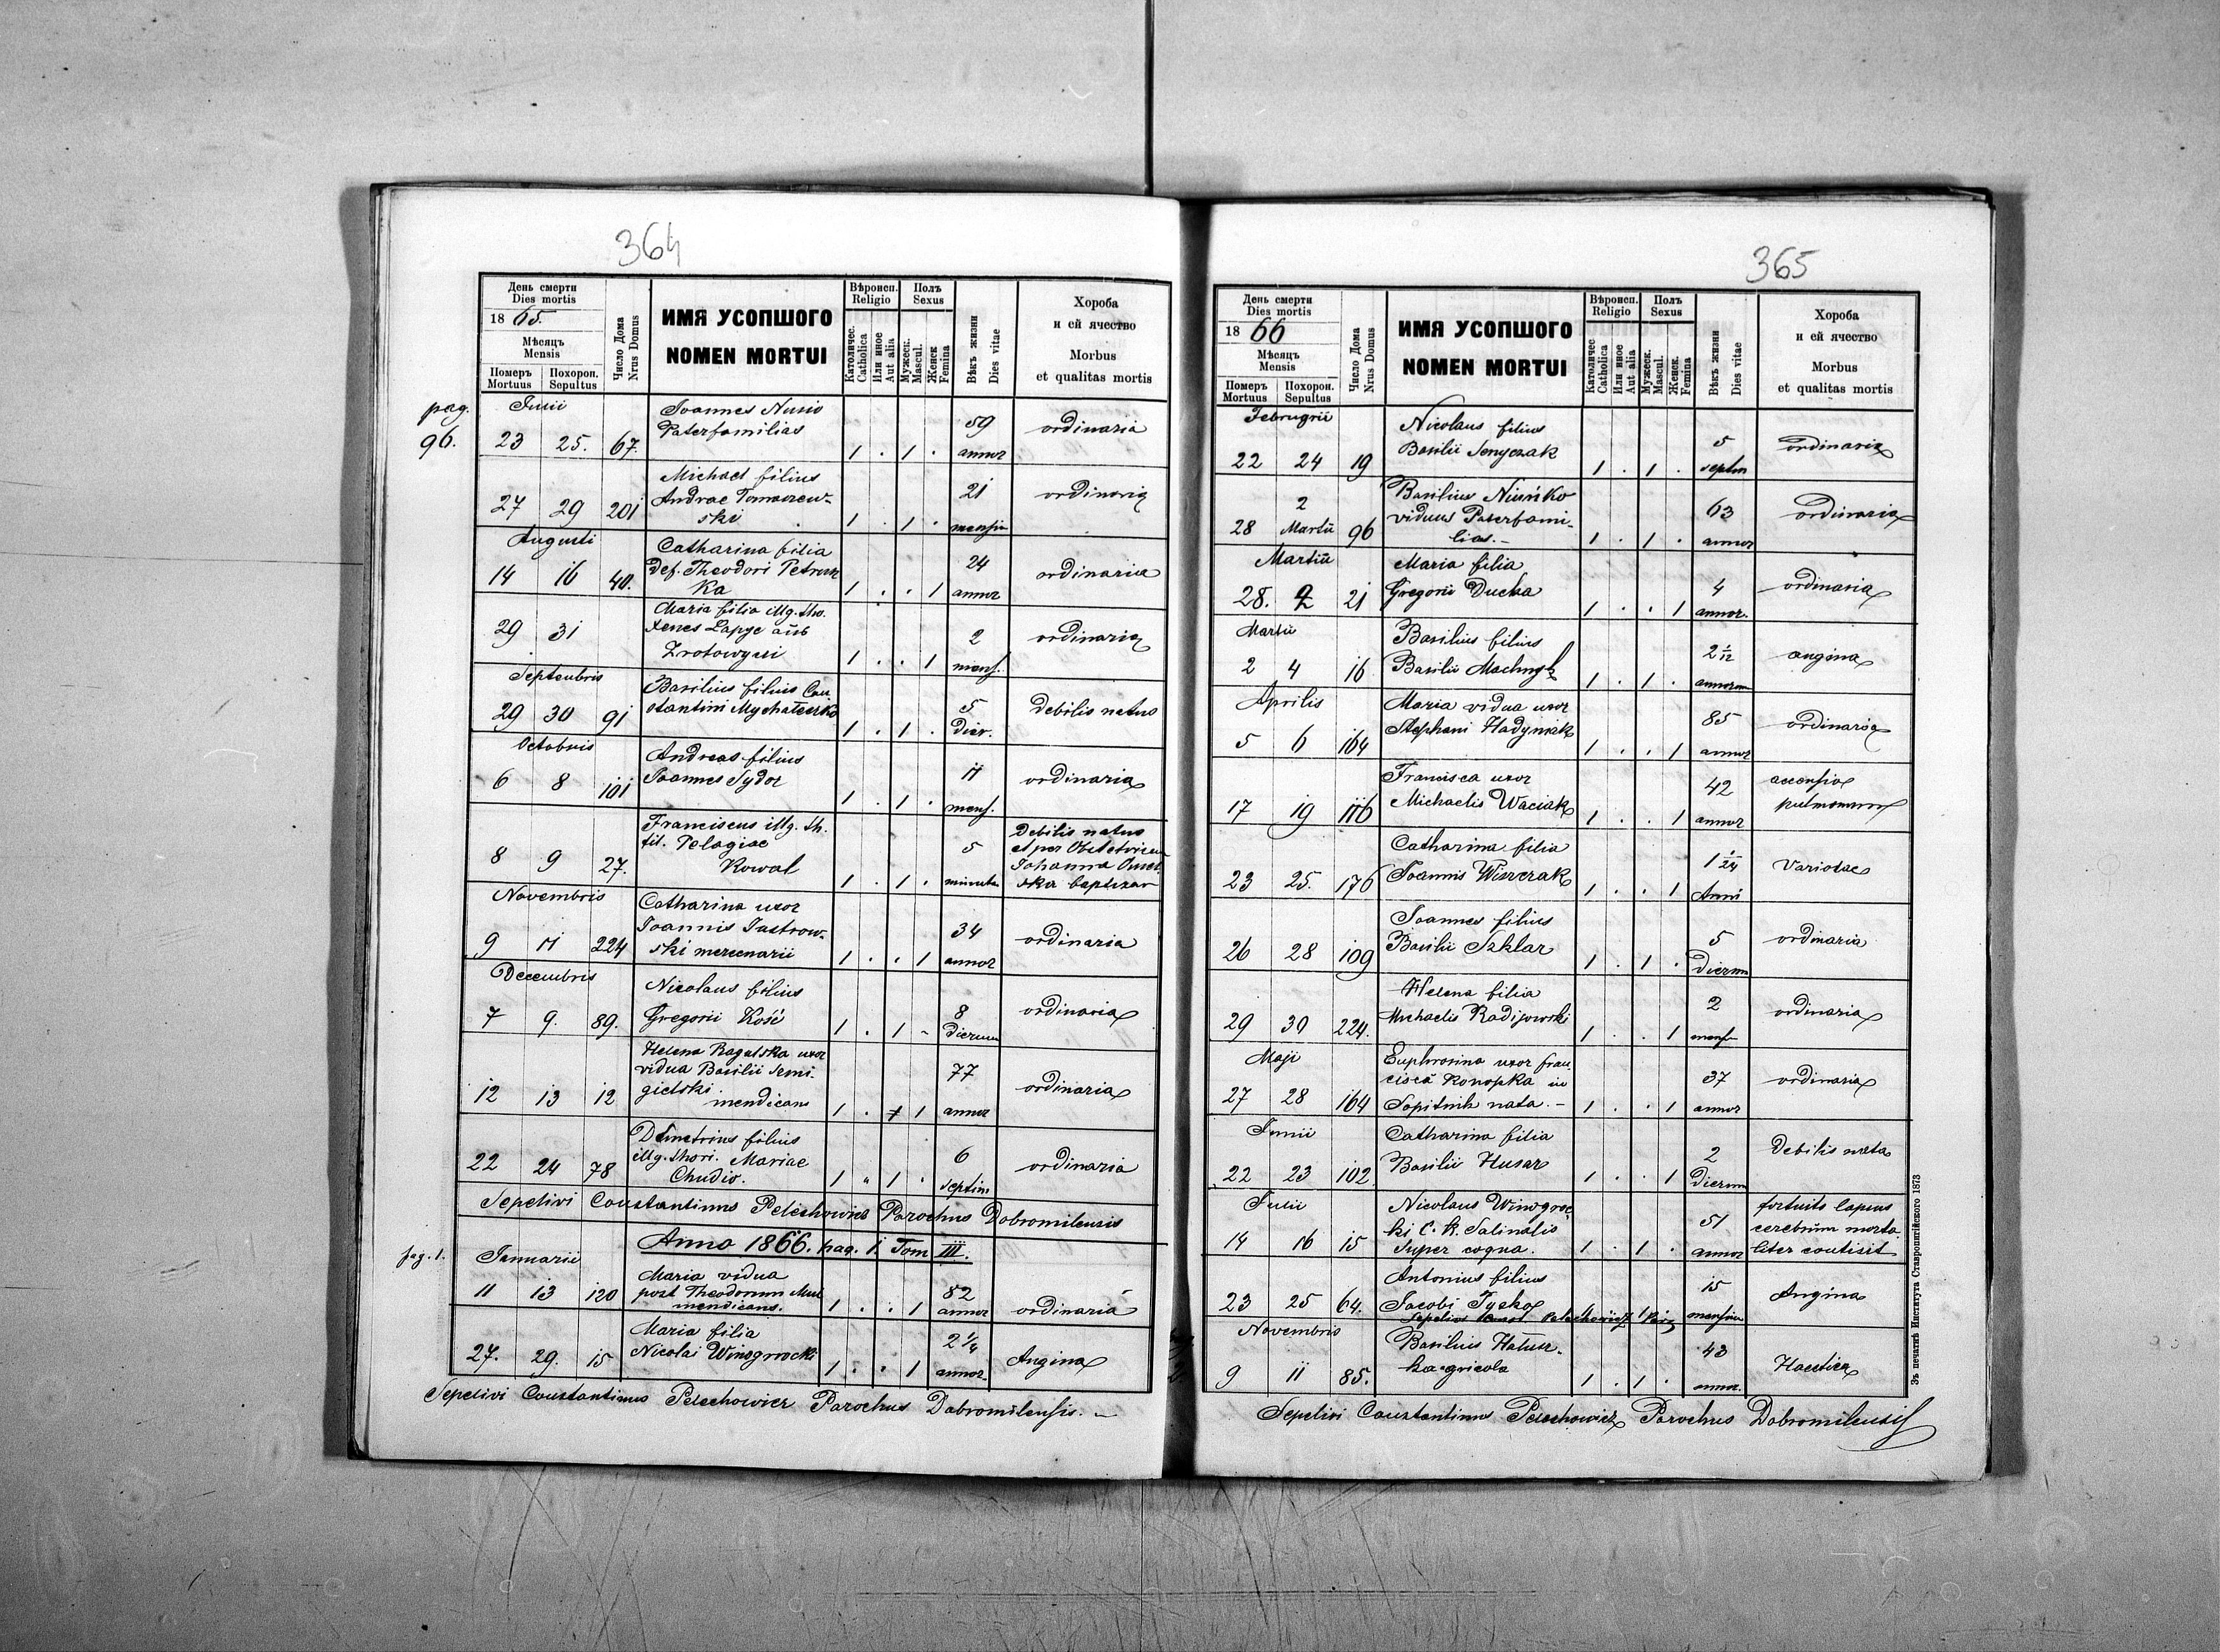 364
День смерти
Dies mortis
1865.
Мѣсяцъ
Mensis
Померъ
Mortuus
Похорон.
Sepultus
Число Дома
Nrus Domus
ИМЯ УСОПШОГО
NOMEN MORTUI
Вѣроисп.
Religio
Католичес.
Catholica
Или иное
Aut alia
Полъ
Sexus
Мужеск.
Mascul.
Женск
Femina
Вѣкъ жизни
Dies vitae
Хороба
и ей ячество
Morbus
et qualitas mortis
pag.
96.
Julii
23 25. 67. Joannes Nusio
Paterfamilias
1 . 1 . 59
annor
ordinaria
27 29 201 Michael filius
Andrae Tomaszew-
ski
1 . 1 . 21
mensiu
ordinaria
Augusti
14 16 40. Catharina filia
Def. Theodori Petrusz
ka
1 . . 1 24
annor
ordinaria
29 31 Maria filia illg. tho.
Xenes Lapyc
1 . . 1 2
mens.
ordinaria
Septembris
29 30 91 Basilius filius Con-
stantini
1 . 1 . 5
Dier.
Debilis natus
Octobris
6 8 101 Andreas filius
Joannes Sydor
1 . 1 . 11
mens.
ordinaria
8 9 27. Franciscus illg. th.
fil. Pelagiae
Kowal
1 . 1 . 5
minuta
Debilis natus
et per Obstetricem
Johanna
ska baptizar
Novembris
9 11 224 Catharina uxor
Joannis Jastrow-
ski mercenarii
1 . . 1 34
annor
ordinaria
Decembris
7 9. 89. Nicolaus filius
Gregorii Kość
1 . 1 - 8
Dierum
ordinaria
12 13 12 Helena Ragulska uxor
vidua Basilii Semi-
gielski
mendicans
1 . 1 77
annor
ordinaria
22 24 78 Demetrius filius
illg. thori. Mariae
Chudio.
1 " 1 . 6
septim
ordinaria
Sepelivi Constantinus Pelechowicz Parochus Dobromilensis
pag. 1.
Anno 1866. pag. 1. Tom III.
Januarii
11 13 120 Maria vidua
post Theodorum
mendicans.
1 . . 1 82
annor
ordinaria
27. 29. 15 Maria filia
Nicolai Winogrocki
1 . . 1 2 1/4
annor
Angina
Sepelivi Constantinus Pelechowicz Parochus Dobromilensis. -
365
День смерти
Dies mortis
1866
Мѣсяцъ
Mensis
Померъ
Mortuus
Похорон.
Sepultus
Число Дома
Nrus Domus
ИМЯ УСОПШОГО
NOMEN MORTUI
Вѣроисп.
Religio
Католичес
Catholica
Или иное
Aut alia
Полъ
Sexus
Мужеск.
Mascul.
Женск.
Femina
Вѣкъ жизни
Dies vitae
Хороба
и ей ячество
Morbus
et qualitas mortis
Februarii
22 24 19 Nicolaus filius
Basilii Senyczak
1 . 1 . 5
septm
ordinaria
28 2
Martii 96 Basilius Niuńko
viduus Paterfami-
lias.-
1 . 1 . 63
annor
ordinaria
Martii
28. 2 21 Maria filia
Gregorii Ducha
1 . . 1 4
annor.
ordinaria
Martii
2 4 16 Basilius filius
Basilii
1 . 1 . 2 1/12
annorum
angina
Aprilis
5 6 164 Maria vidua uxor
Stephani Hadyniak
1 . . 1 85
annor
ordinaria
17 19 116 Francisca uxor
Michaelis Waciak
1 . . 1 42
annor
accensio
pulmonum
23 25. 176 Catharina filia
Joannis Wiszczak
1 . . 1 1 1/24
Anni
Variolae
26 28 109 Joannes filius
Basilii Szklar
1 . 1 . 5
Dierum
ordinaria
29 30 224. Helena filia
Michaelis Radijowski
1 . . 1 2
mens
ordinaria
Maji
27 28 164 Euphrosina uxor fran-
cisci Konopka in
Sopitnik nata.-
1 . . 1 37
annor
ordinaria
Junii
22 23 102 Catharina filia
Basilii Husar
1 . . 1 2
Dierum
Debilis nata
Julii
14 16 15 Nicolaus Winogroc-
ki C. R. Salinalis
Super
1 . 1 . 51
annor
fortuito lapsus
cerebrum morta-
liter
23 25 64. Antonius filius
Jacobi Tysko
15
mensium
Angina
Novembris
9 11 85. Basilius Hatur-
ka agricola
1 . 1 . 43
annor.
Haectica
Sepelivi Constantinus Pelechowicz Parochus Dobromilensis
Зъ печатнѣ Института Ставропигійского 1873